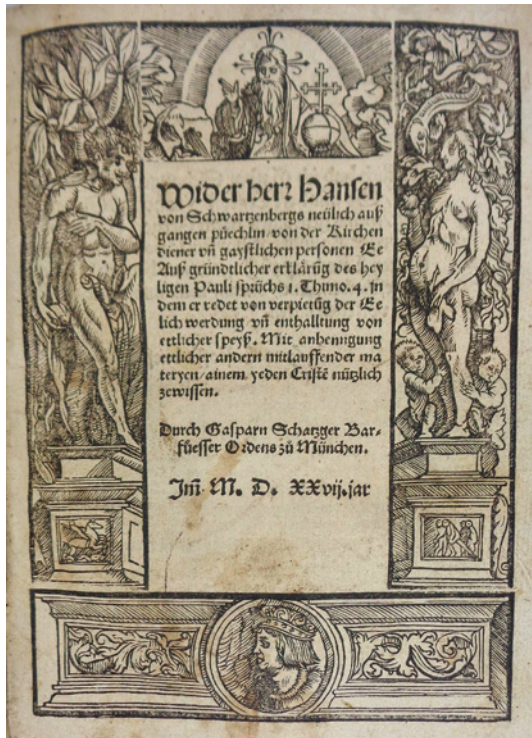 Wider herr Hansen
von Schwartzenbergs neülich auß
gangen püechlin/ von der Kirchen
diener vn̄ gaystlichen personen Ee
Auß gründtlicher erklärūg des hey
ligen Pauli sprüchs 1. Thimo. 4. in
dem er redet von verpietūg der Ee
lich werdung vn̄ enthalltung von
ettlicher speyß. Mit anhengung
ettlicher andern mitlauffender ma
teryen/ ainem yeden Cristē nützlich
zewissen.
Durch Gasparn Schatzger Bar-
füesser Ordens zů München.
Im̄ M. D. XXvij. jar